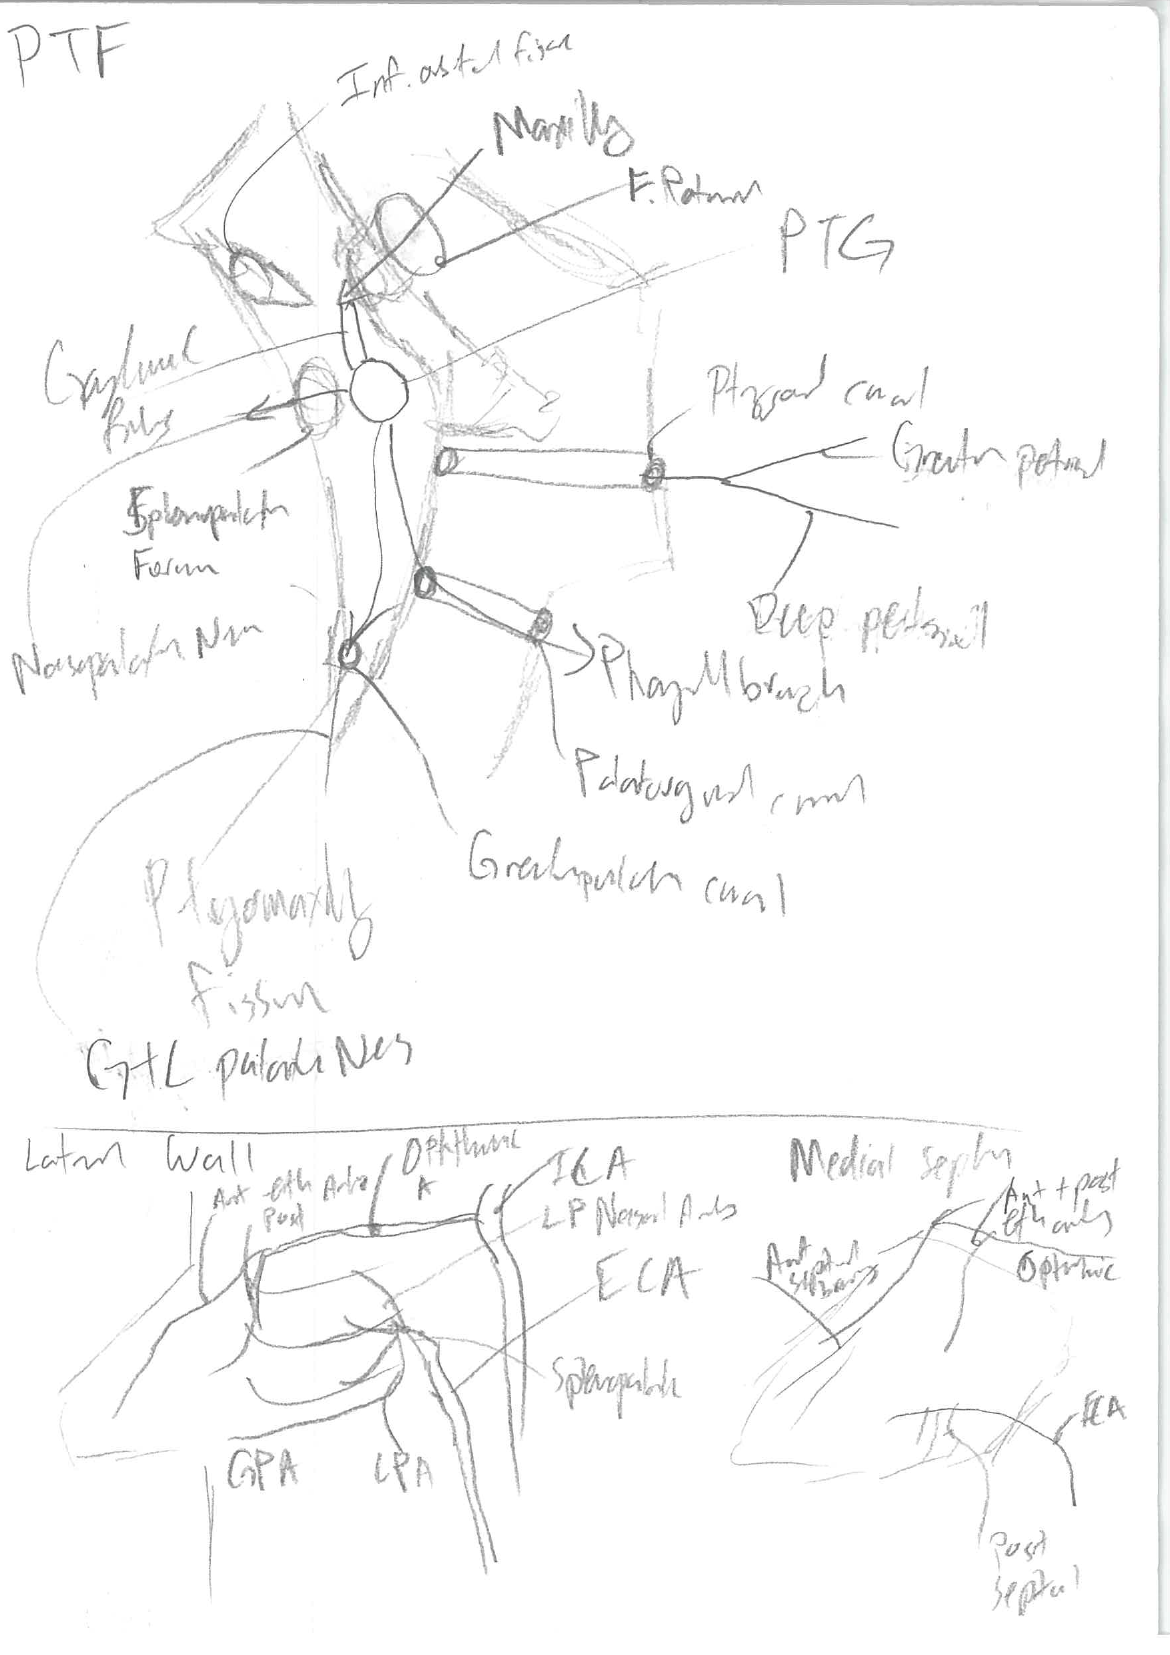 PTF
Inf. orbital fissure
Maxillary
F. Rotundum
PTG
Ganglionic
Pterygoid canal
Greater petrosal
Sphenopalatine
Foramen
Deep petrosal
Nasopalatine Nerve
Pharyngeal branch
Palatovaginal canal
Greater palatine canal
Pterygomaxillary
Fissure
G+L palatine Nerves
Lateral Wall
Medial septum
Ant eth
Post
Ophthalmic
A
ICA
LP Nasal
ECA
Sphenopalatine
GPA
LPA
Ant + post
eth
Ophthalmic
Ant septal
ECA
Post
septal